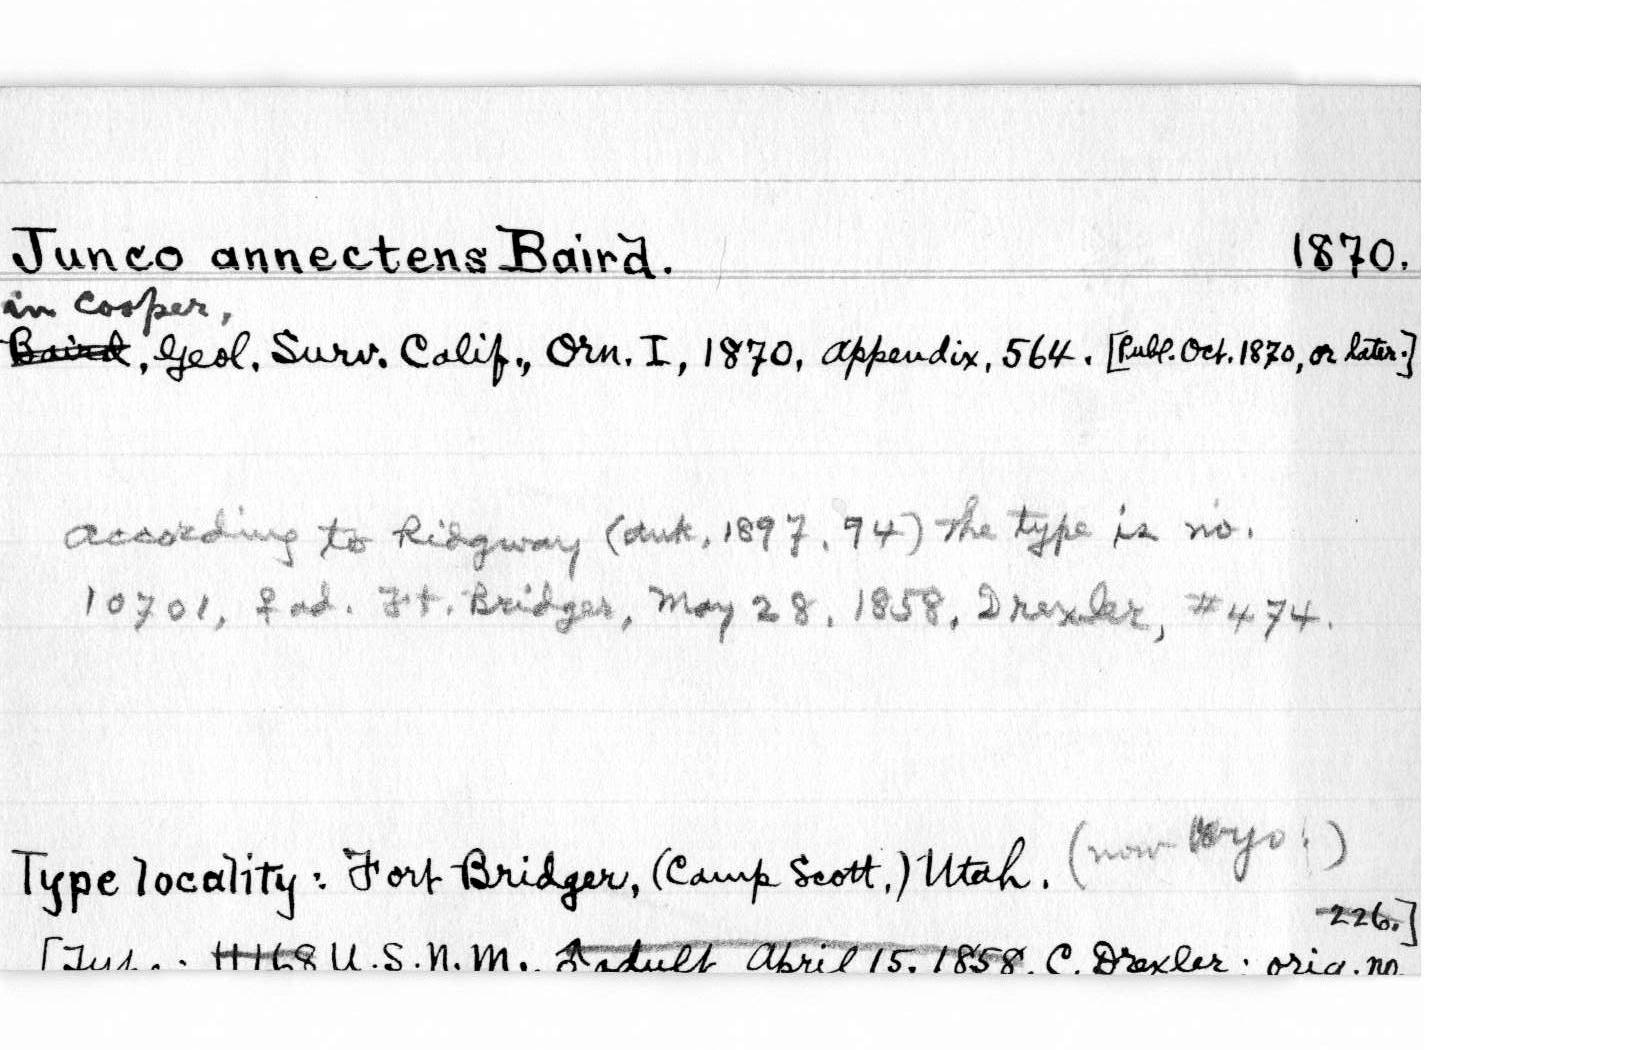 Junco annectens Baird. 1870.
in Cooper,
Baird, Geol. Surv. Calif., Orn. I, 1870, Appendix, 564. [Publ. Oct. 1870, or later.]
According to Ridgway (Auk, 1897, 94) the type is no.
10701, ♀ ad. Ft. Bridger, May 28, 1858, Drexler, #474.
Type locality: Fort Bridger, (Camp Scott,) Utah. (now Wyo.)
226.]
[Type: 11168 U.S.N.M., adult April 15, 1858. C. Drexler: orig. no